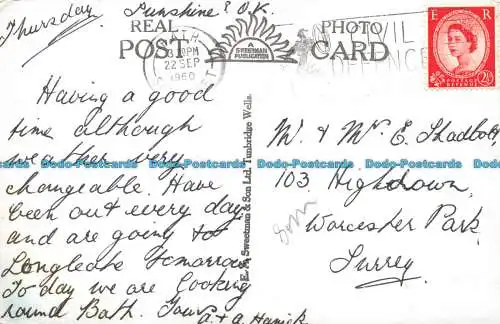 Thursday. Sunshine? O.K.
REAL PHOTO
POST CARD
SWEETMAN
PUBLICATION
PM
22 SEP
1960
CIVIL
DEFENCE
E R
POSTAGE
REVENUE
2½
Having a good
time although
weather very
changeable. Have
been out every day
and are going to
Longleate tomorrow
To day we are looking
round Bath.
E. T. W. Sweetman & Son Ltd. Tunbridge Wells.
Mr & Mrs E. Shadbolt
103, Highdown,
Worcester Park,
Surrey.
Dodo-Postcards Dodo-Postcards Dodo-Postcards Dodo-Postcards Dodo-Postcards